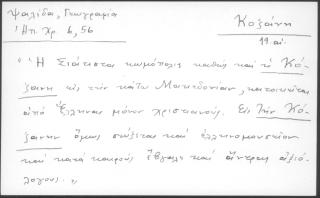 Ψαλίδα, Γεωγραφία
Ἠπ. Χρ. 6, 56
Κοζάνη
19 αἰ.
"Ἡ Σιάτιστα κωμόπολη καθὼς καὶ ἡ Κό-
ζανη εἰς τὴν κάτω Μακεδονίαν, κατοικεῖται
ἀπὸ Ἕλληνας μόνον χριστιανούς. Εἰς τὴν Κό-
ζανην ὅμως σώζεται καὶ ἑλληνομουσεῖον
καὶ κατὰ καιροὺς ἔβγαλε καὶ ἄντρες ἀξιο-
λόγους.."